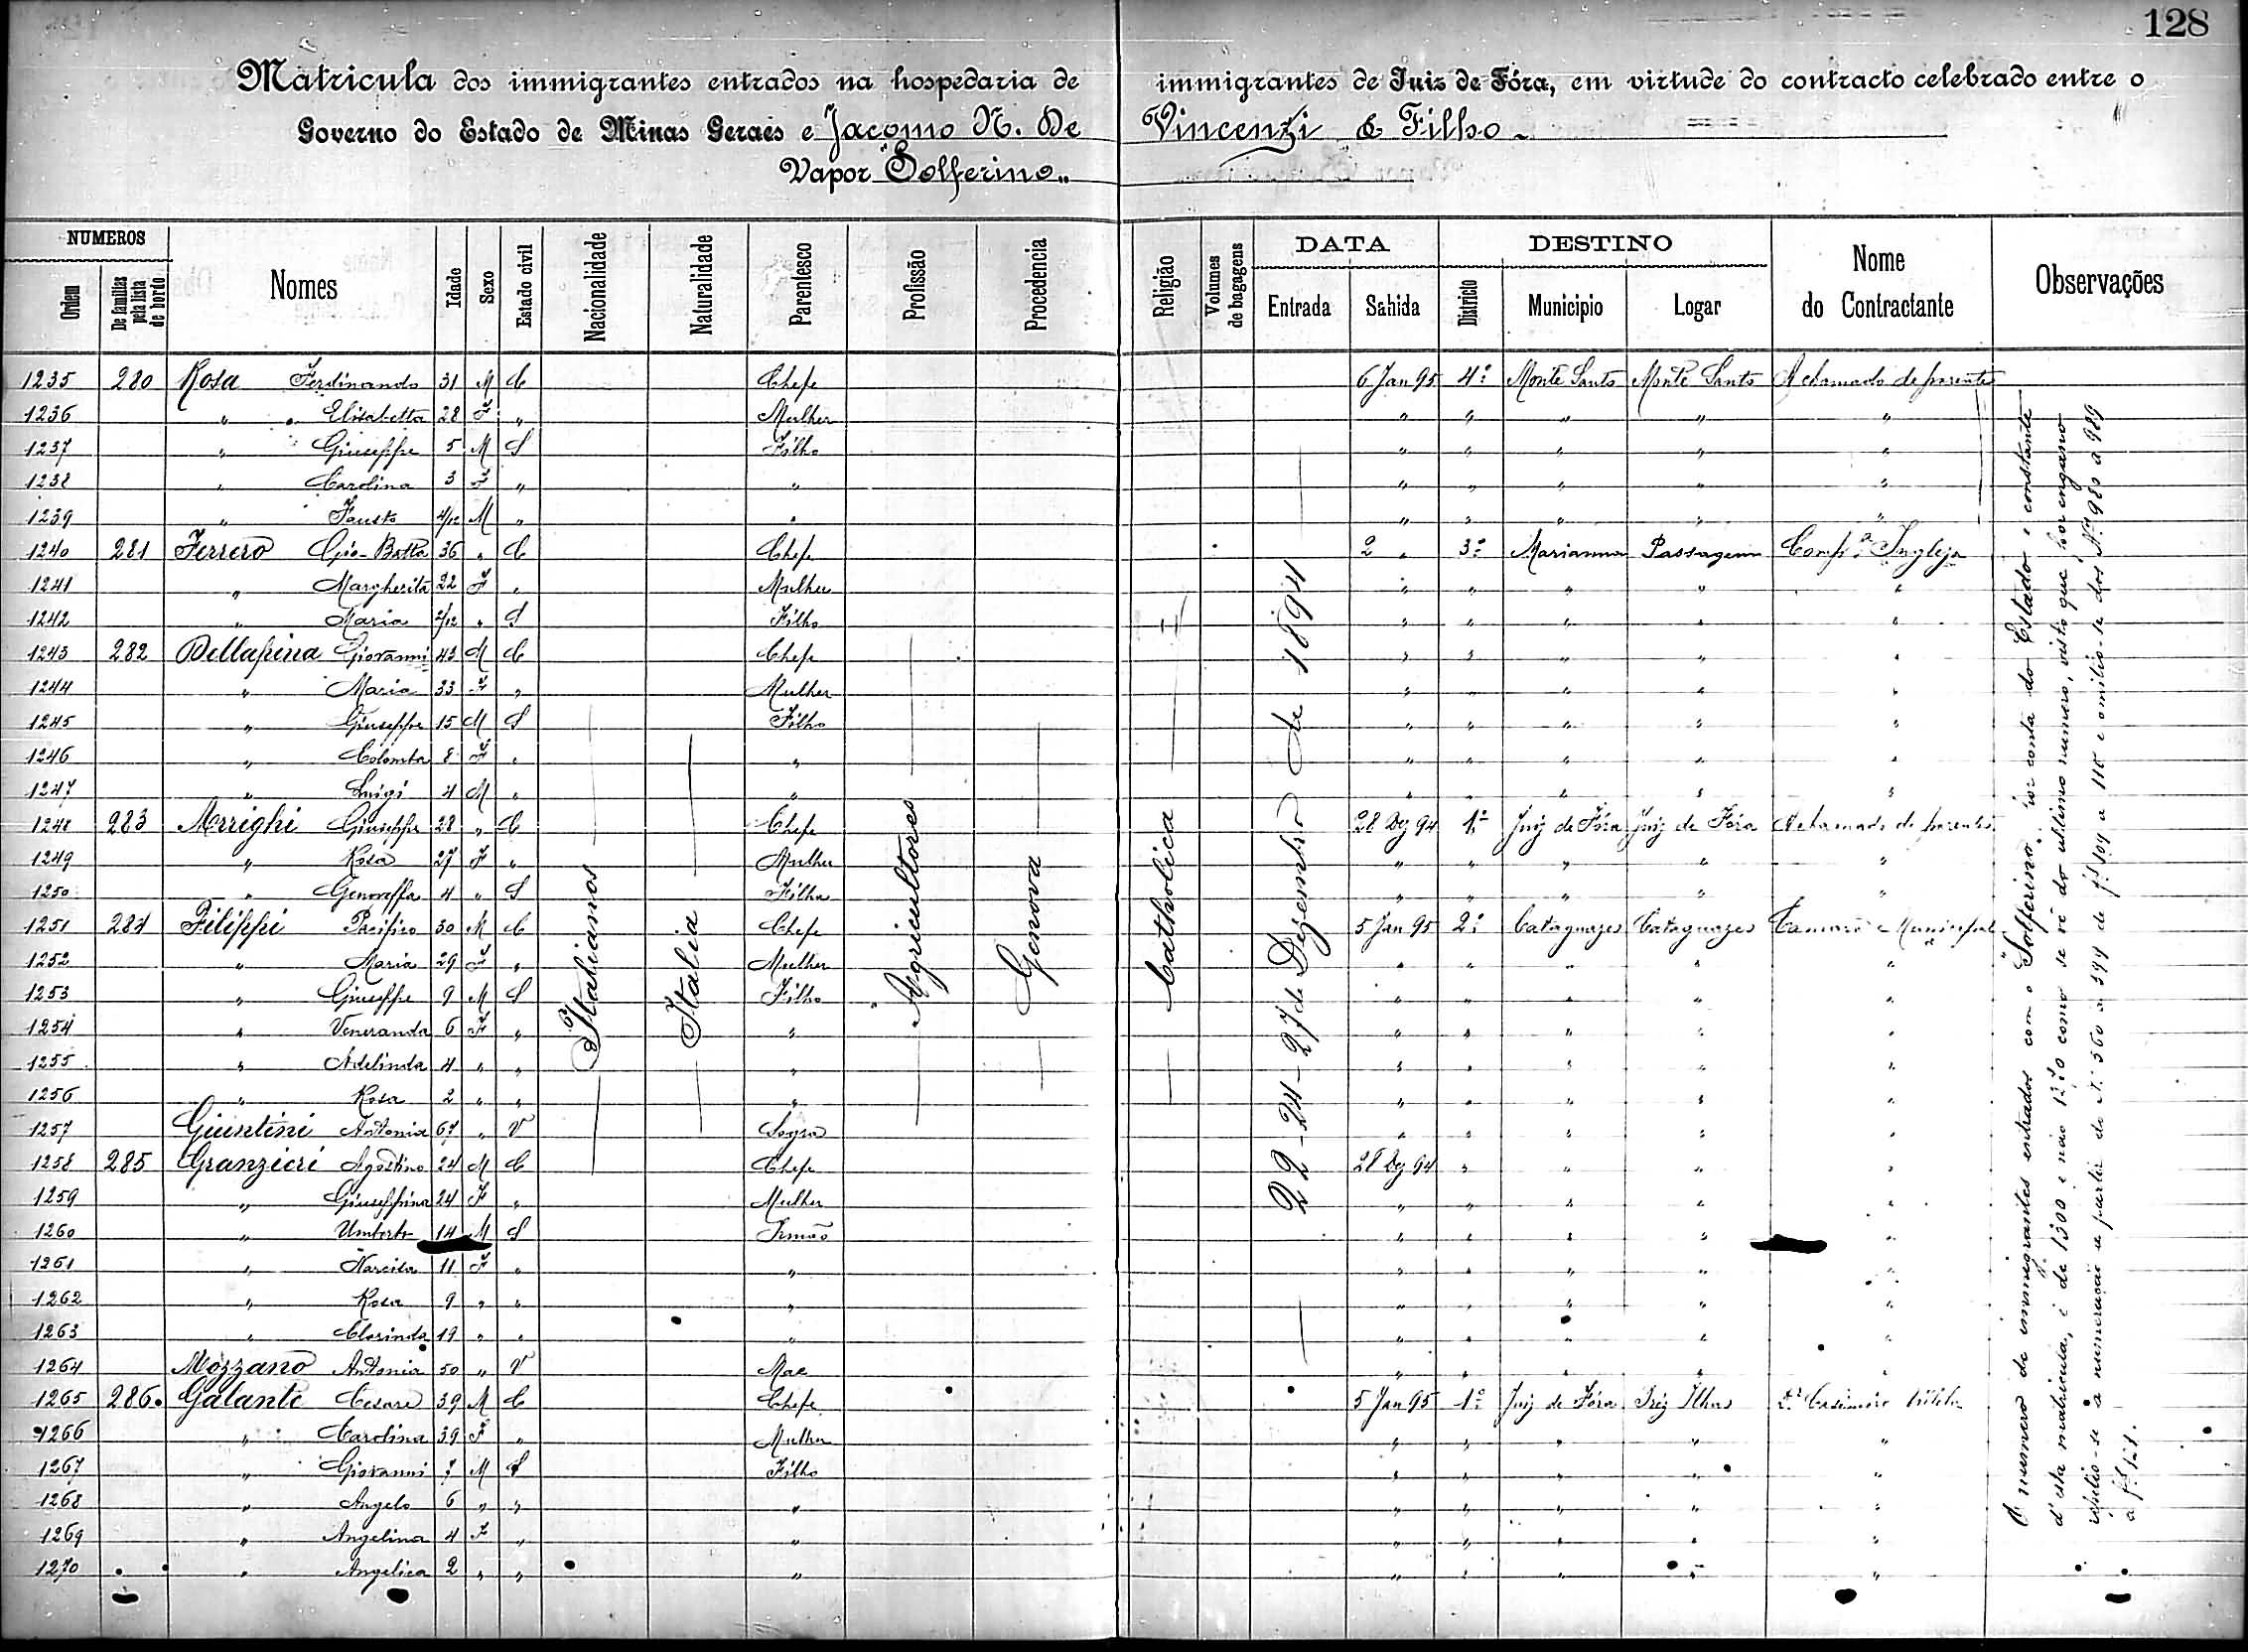 128
Matricula dos immigrantes entrados na hospedaria de immigrantes de Juiz de Fóra, em virtude do contracto celebrado entre o
Governo do Estado de Minas Geraes e Jacomo N. De Vincenzi & Filho.
Vapor "Solferino"
NUMEROS Nomes Idade Sexo Estado civil Nacionalidade Naturalidade Parentesco Profissão Procedencia Religião Volumes de bagagens DATA DESTINO Nome do Contractante Observações
Ordem De familias pela lista de bordo Entrada Sahida Districto Municipio Logar
1235 280 Rosa Ferdinando 31 M C Chefe 6 Jan 95 4º Monte Santo Monte Santo A chamado de parentes
1236 " " Elisabetta 28 F " Mulher " " " " "
1237 " Giuseppe 5 M S Filho " " " " "
1238 " Carolina 3 F " " " " " " "
1239 " Fausto 4/12 M " " " " " " "
1240 281 Ferrero Gio-Batta 36 " C Chefe 2 " 3º Marianna Passagem Compª Ingleza
1241 " Margherita 22 F " Mulher " " " " "
1242 " Maria 2/12 " S Filho " " " " "
1243 282 Dellapina Giovanni 43 M C Chefe " " " " "
1244 " Maria 33 F " Mulher " " " " "
1245 " Giuseppe 15 M S Filho " " " " "
1246 " Colomba 8 F " " " " " " "
1247 " Luigi 4 M " " " " " " "
1248 283 Arrighi Giuseppe 28 " C Chefe 28 Dez 94 1º Juiz de Fóra Juiz de Fóra A chamado de parentes
1249 " Rosa 27 F " Mulher " " " " "
1250 " Genoveffa 4 " S Filha " " " " "
1251 284 Filippi Pacifico 30 M C Chefe 5 Jan 95 2º Cataguazes Cataguazes Camara Municipal
1252 " Maria 29 F " Mulher " " " " "
1253 " Giuseppe 9 M S Filho " " " " "
1254 " Veneranda 6 F " " " " " " "
1255 " Adelinda 4 " " " " " " " "
1256 " Rosa 2 " " " " " " " "
1257 Giuntini Antonia 67 " V Sogra " " " " "
1258 285 Granzieri Agostino 24 M C Chefe 28 Dez 94 " " " "
1259 " Giuseppina 24 F " Mulher " " " " "
1260 " Umberto 14 M S Irmão " " " " "
1261 " Narcisa 11 F " " " " " " "
1262 " Rosa 9 " " " " " " " "
1263 " Clorinda 19 " " " " " " " "
1264 Mozzano Antonia 50 " V Mae " " " " "
1265 286 Galante Cesare 39 M C Chefe 5 Jan 95 1º Juiz de Fóra Trez Ilhas
1266 " Carolina 39 F " Mulher " " " " "
1267 " Giovanni 7 M S Filho " " " " "
1268 " Angelo 6 " " " " " " " "
1269 " Angelina 4 F " " " " " " "
1270 " Angelica 2 " " " " " " " "
Italianos
Italia
Agricultores
Genova
Catholica
22-24-27 de Dezembro de 1894
O numero de immigrantes entrados com o "Solferino" por conta do Estado e constante
d'esta matricula, é de 1300 e não 1270 como se vê do ultimo numero, visto que por engano
a numeração a partir do Nº 560 a 594 de fls 109 a 110 e omitio-se dos Nos 980 a 989
a fls 121.